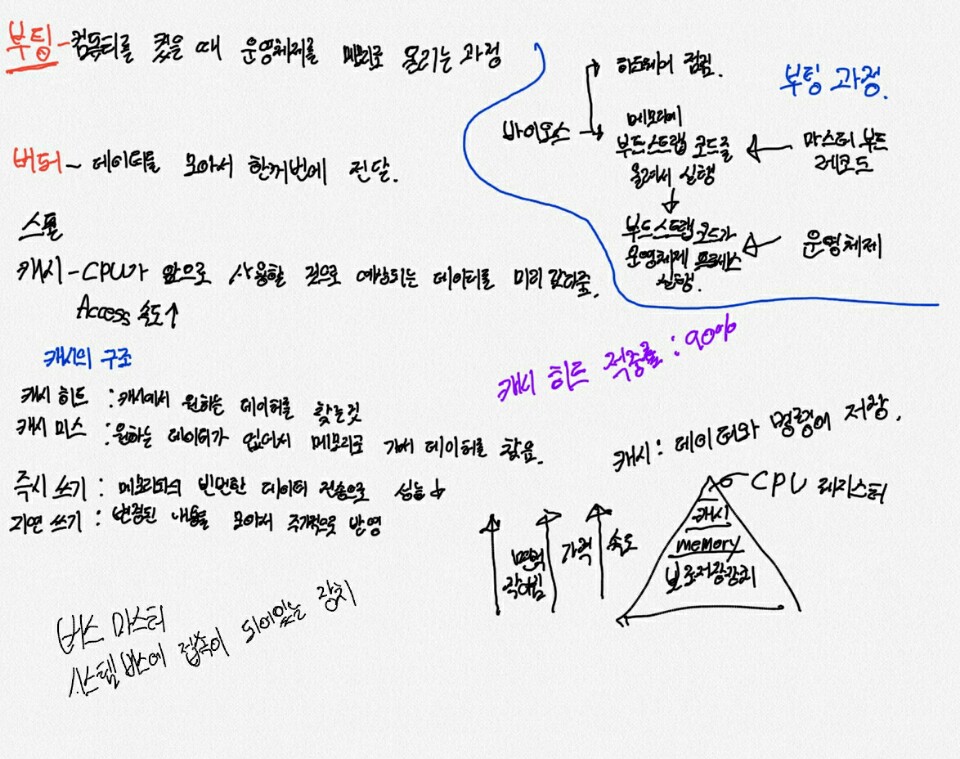 부팅 - 컴퓨터를 켰을 때 운영체제를 메모리로 올리는 과정
버퍼 ~ 데이터를 모아서 한꺼번에 전달.
스풀
캐시 - CPU가 앞으로 사용할 것으로 예상되는 데이터를 미리 갖다줌.
Access 속도↑
캐시의 구조
캐시 히트 : 캐시에서 원하는 데이터를 찾는것
캐시 미스 : 원하는 데이터가 없어서 메모리로 가서 데이터를 찾음.
즉시 쓰기 : 메모리와의 빈번한 데이터 전송으로 성능↓
지연 쓰기 : 변경된 내용을 모아서 주기적으로 반영
버스 마스터
시스템버스에 접속이 되어있는 장치
부팅 과정.
하드웨어 점검.
바이오스
메모리에
부트스트랩 코드를
올려서 실행
마스터 부트
레코드
부트스트랩 코드가
운영체제 프로세스
실행.
운영체제
캐시 히트 적중률 : 90%
캐시 : 데이터와 명령어 저장.
CPU 레지스터
캐시
memory
보조저장장치
면적
작아짐
가격
속도